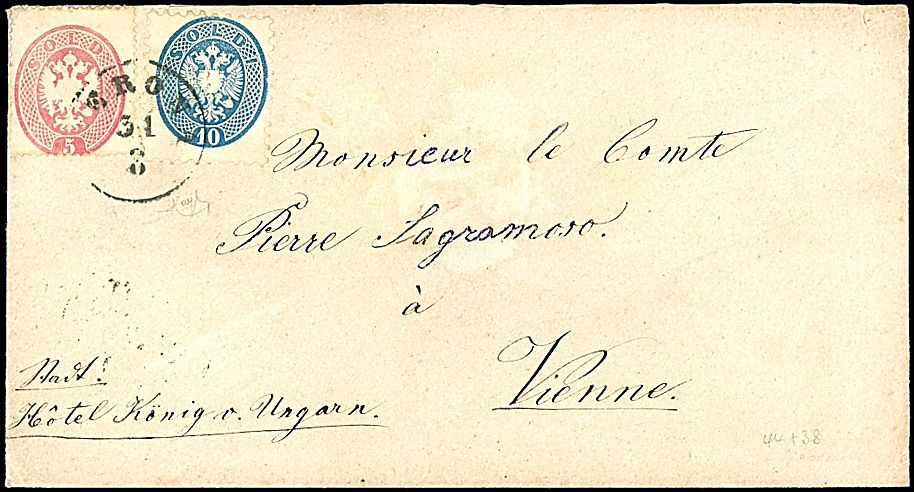 SOLDI
5
SOLDI
10
31
8
Monsieur le Comte
Pierre Sagramoso.
à
Vienne.
Stadt:
Hôtel König v. Ungarn.
44+38